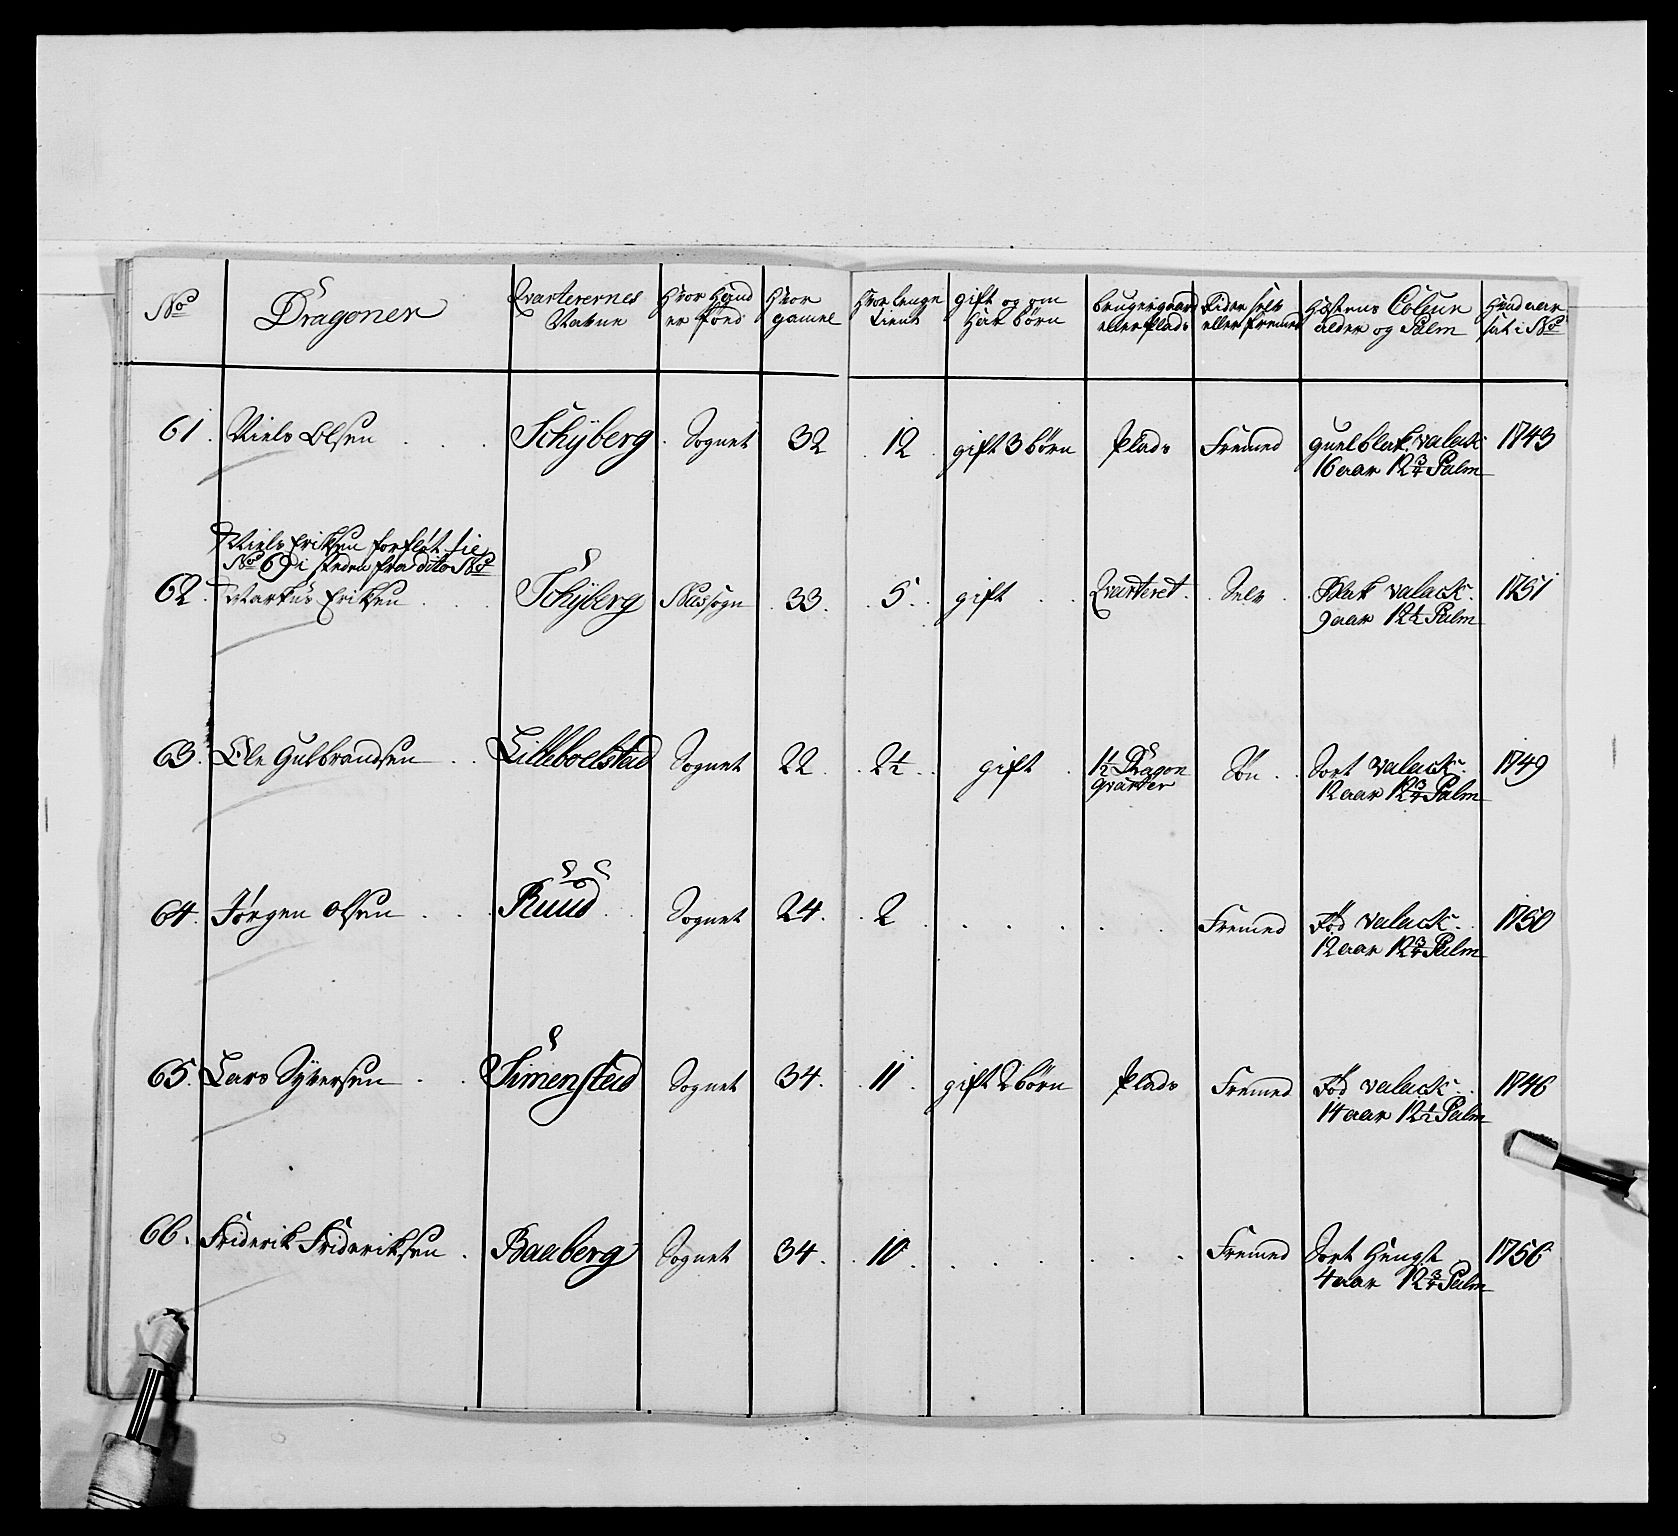 No | Dragoner | Qvarterernes Navne | Hvor Hand er fönd | Hvor gamel | Hvor lenge tient | gift og om Har börn | bruger gaard eller Plads | Rider selv eller fremed | Hæstens Coleur alder og Palm | Hvad aar sat i No
61. Niels Olsen | Schÿberg | Sognet | 32 | 12 | gift 3 börn | Plads | Fremed | guulblak valack 16 aar 12 3/4 Palm | 1743
Niels Eriksen forfløt til
No 69 i steden fra dito No
62. Markus Eriksen | Schÿberg | Næssogn | 33. | 5. | gift | Qvarteret. | Selv | Blak valack. 9 aar 12 1/2 Palm | 1751
63. Ole Gulbrandsen | Lilleboelstad | Sognet | 22. | 2 1/2. | gift | 1 1/2 Dragon qvarter | Sön | Sort valack. 12 aar 12 3/4 Palm | 1749
64. Jørgen Olsen | Ruud | Sognet | 24. | 2 | Fremed | Rød valack. 12 aar 12 3/4 Palm | 1750
65. Lars Syversen | Simenstad | Sognet | 34. | 11. | gift 2 börn | Plads | Fremed | Rød valack. 14 aar 12 1/2 Palm | 1746
66. Friderik Frideriksen | Baaberg | Sognet | 34. | 10. | Fremed | Sort Hengst 4 aar 12 3/4 Palm | 1756